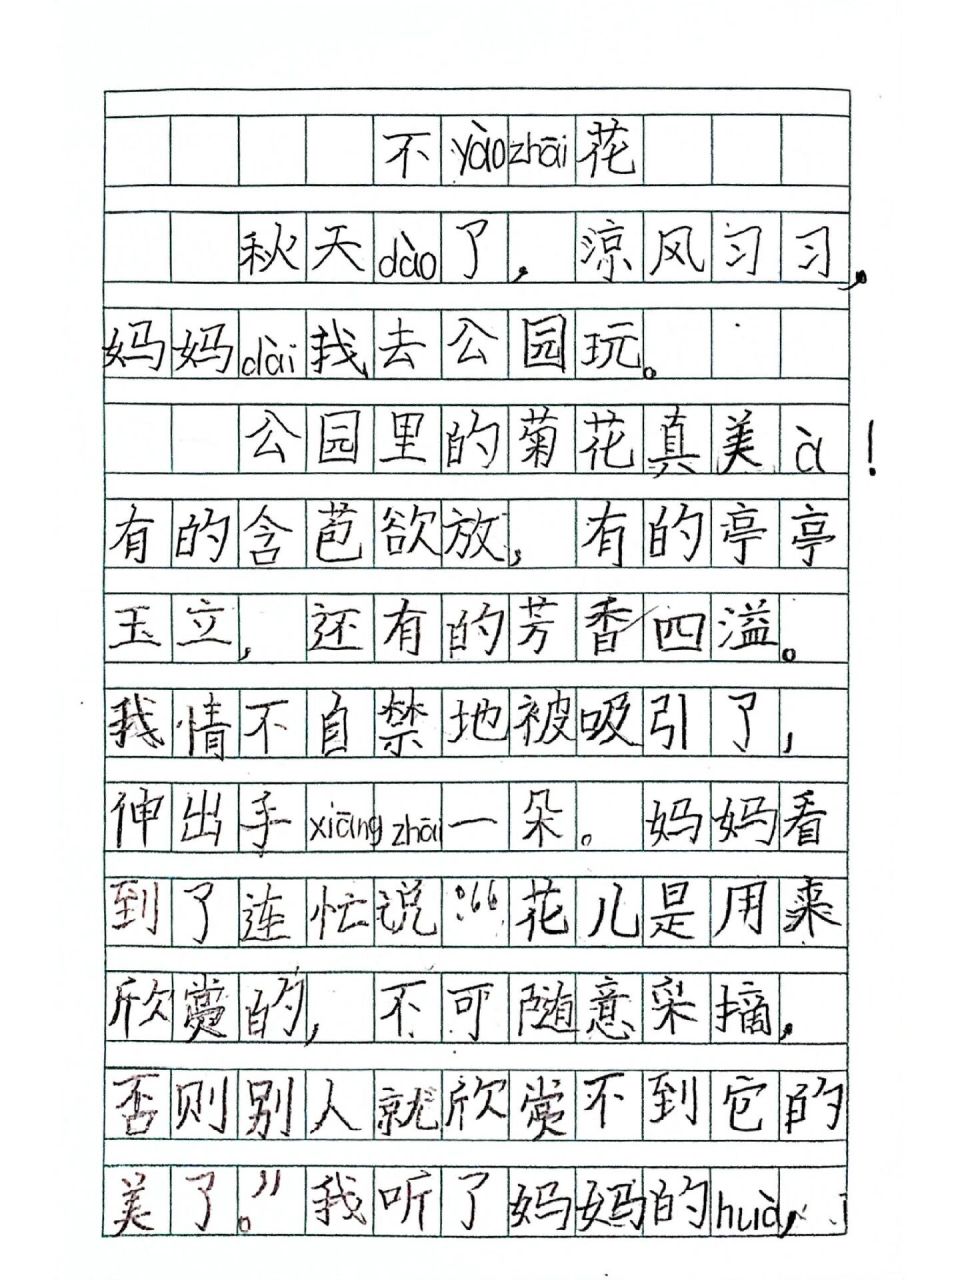 不yàozhāi花
秋天dào了，凉风习习，
妈妈dài我去公园玩。
公园里的菊花真美à！
有的含苞欲放，有的亭亭
玉立，还有的芳香四溢。
我情不自禁地被吸引了，
伸出手xiāngzhāi一朵。妈妈看
到了连忙说：“花儿是用来
欣赏的，不可随意采摘，
否则别人就欣赏不到它的
美了。”我听了妈妈的huà，